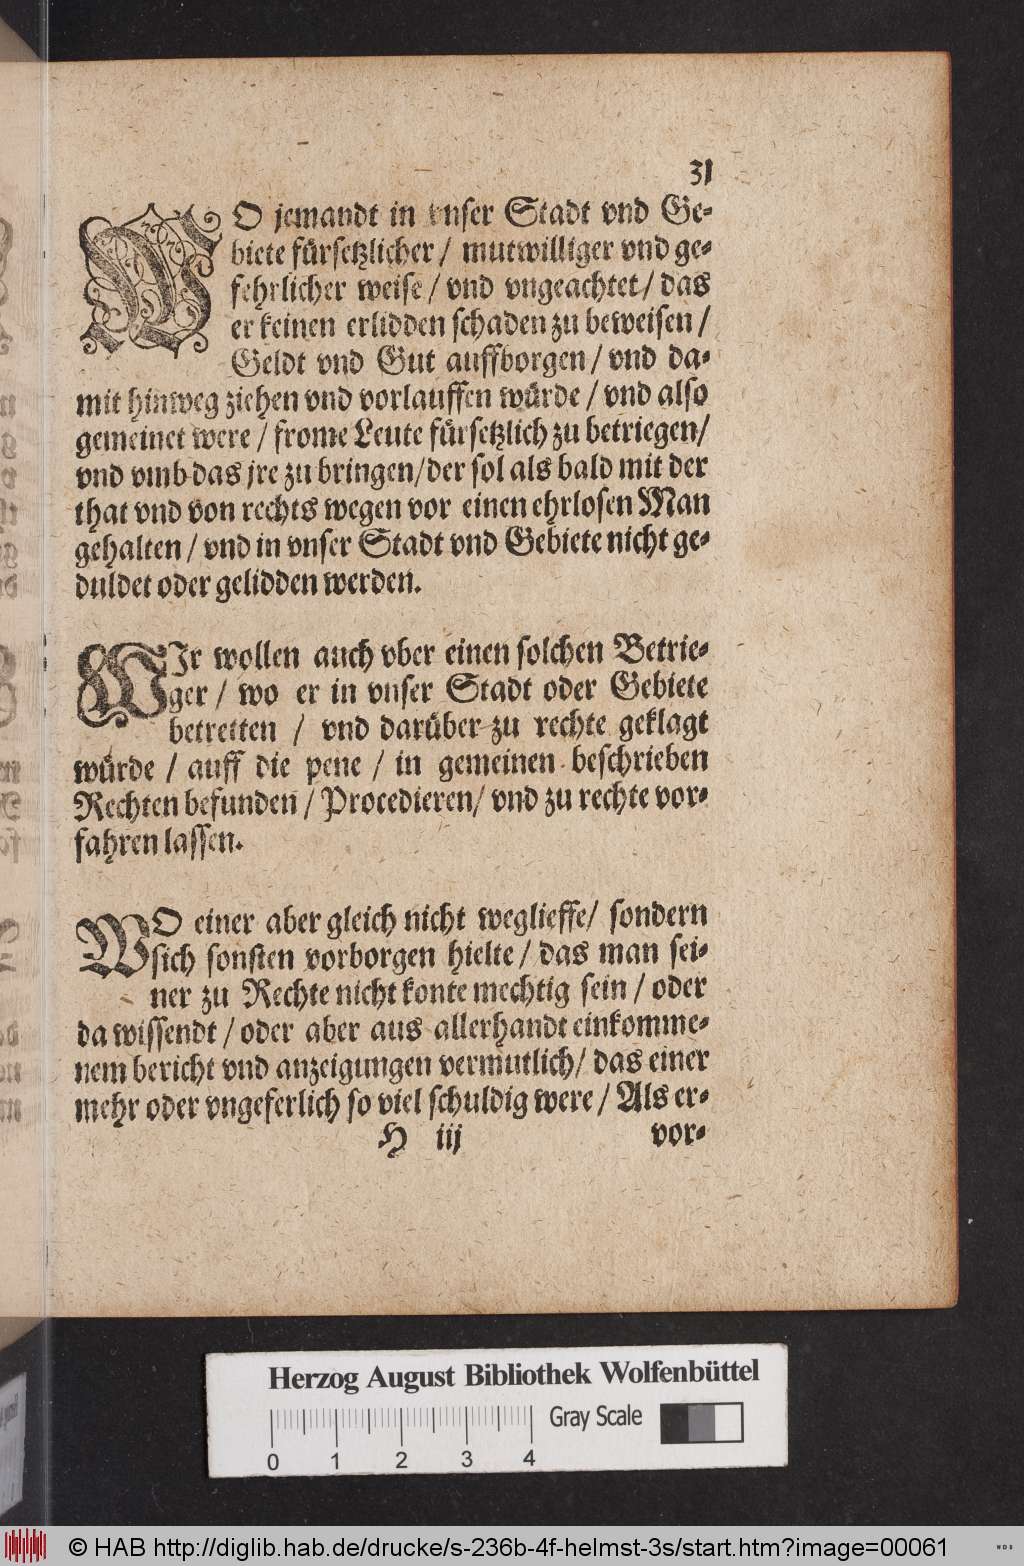 31
WO jemandt in vnser Stadt vnd Ge-
biete fürsetzlicher / mutwilliger vnd ge-
fehrlicher weise / vnd vngeachtet / das
er keinen erlidden schaden zu beweisen /
Geldt vnd Gut auffborgen / vnd da-
mit hinweg ziehen vnd vorlauffen würde / vnd also
gemeinet were / frome Leute fürsetzlich zu betriegen /
vnd vmb das jre zu bringen / der sol als bald mit der
that vnd von rechts wegen vor einen ehrlosen Man
gehalten / vnd in vnser Stadt vnd Gebiete nicht ge-
duldet oder gelidden werden.
WIr wollen auch vber einen solchen Betrie-
ger / wo er in vnser Stadt oder Gebiete
betretten / vnd darüber zu rechte geklagt
würde / auff die pene / in gemeinen beschrieben
Rechten befunden / Procedieren / vnd zu rechte vor-
fahren lassen.
WO einer aber gleich nicht weglieffe / sondern
sich sonsten vorborgen hielte / das man sei-
ner zu Rechte nicht konte mechtig sein / oder
da wissendt / oder aber aus allerhandt einkomme-
nem bericht vnd anzeigungen vermutlich / das einer
mehr oder vngeferlich so viel schuldig were / Als er-
H iij vor-
Herzog August Bibliothek Wolfenbüttel
Gray Scale
0 1 2 3 4
© HAB http://diglib.hab.de/drucke/s-236b-4f-helmst-3s/start.htm?image=00061